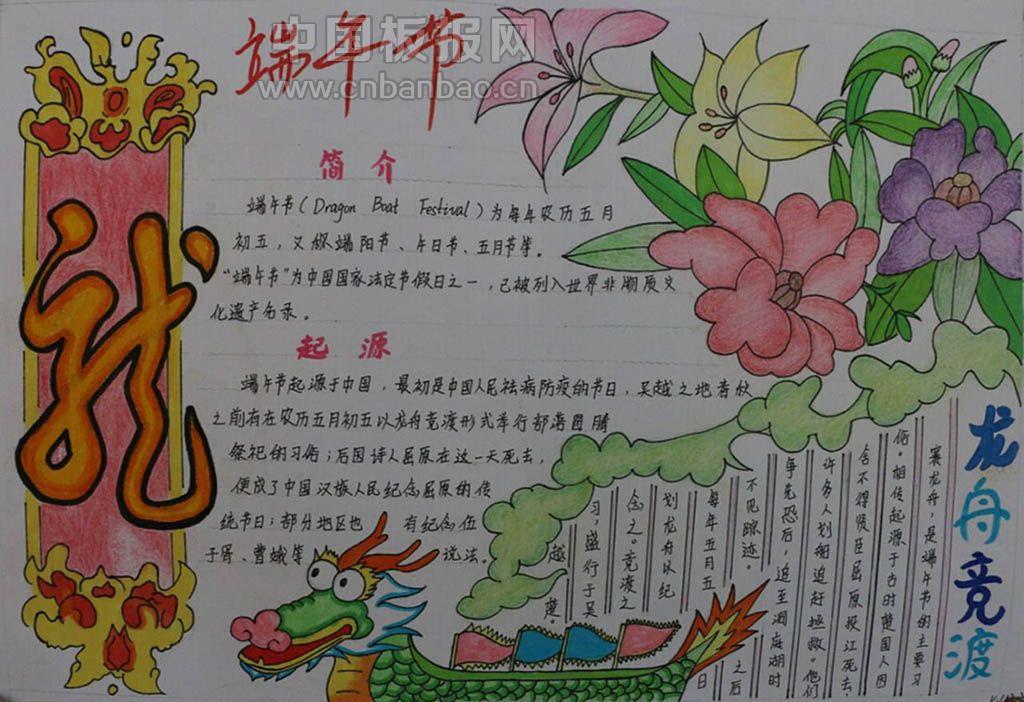 中国板报网
www.cnbanbao.cn
端午节
龙
简介
端午节（Dragon Boat Festival）为每年农历五月
初五，又称端阳节、午日节、五月节等。
“端午节”为中国国家法定节假日之一，已被列入世界非物质文
化遗产名录。
起源
端午节起源于中国，最初是中国人民祛病防疫的节日，吴越之地春秋
之前有在农历五月初五以龙舟竞渡形式举行部落图腾
祭祀的习俗；后因诗人屈原在这一天死去，
便成了中国汉族人民纪念屈原的传
统节日；部分地区也 有纪念伍
子胥、曹娥等 说法。
龙舟竞渡
赛龙舟，是端午节的主要习
俗。相传起源于古时楚国人因
舍不得贤臣屈原投江死去，
许多人划船追赶拯救。他们
争先恐后，追至洞庭湖时
不见踪迹。 之后
每年五月五 日
划龙舟以纪
念之。竞渡之
习，盛行于吴
越 楚。